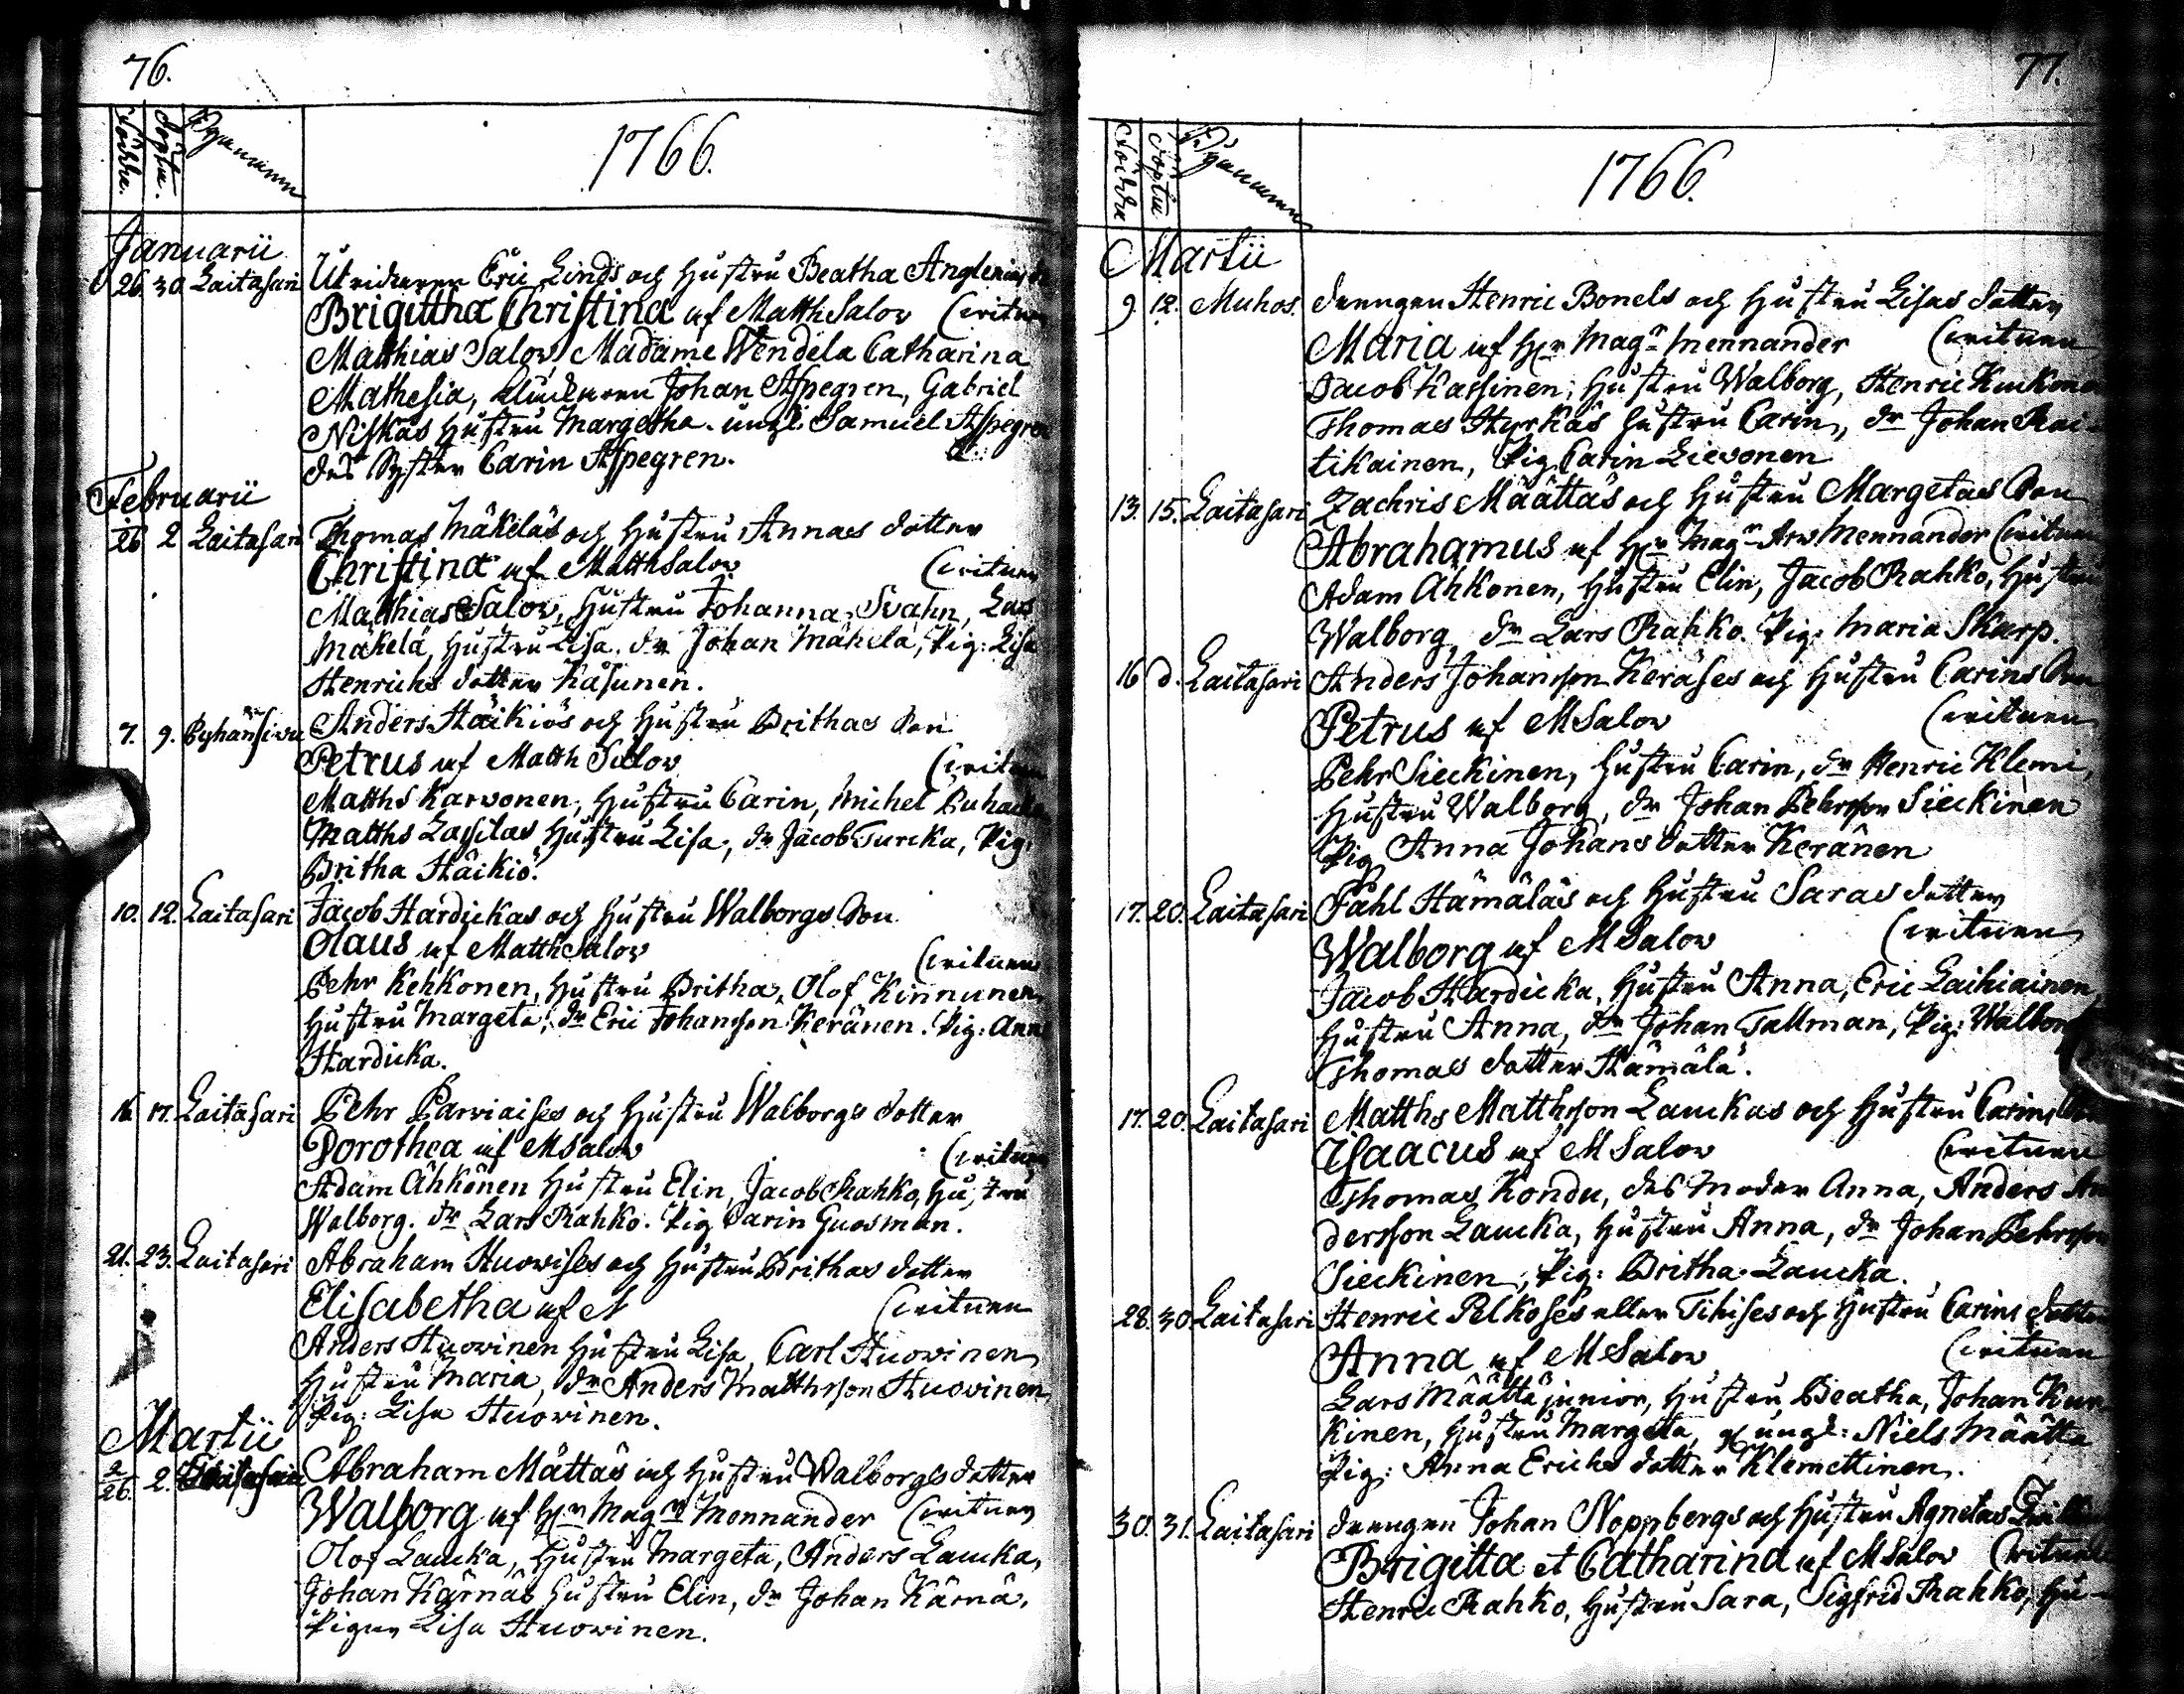 76.
Födde. Döpte. Byanamn
1766.
Januarii
26. 30 Laitasari Utridaren Eric Linds och Hustru Beatha Anglenias
Brigittha Christina af Matth Salov
Matthias Salov, Madame Wendela Catharina
Mathesia, Johan Aspegren, Gabriel
Niskas Hustru Margetha. ungl: Samuel Aspegren
des Syster Carin Aspegren.
Februarii
26 2 Laitasari Thomas Mäkeläs och Hustru Annas dotter
Christina af Matth Salov
Matthias Salov, Hustru Johanna Svahn, Lars
Mäkelä, Hustru Lisa. dr Johan Mäkelä, Pig: Lisa
Henrichs dotter Käsunen.
7. 9. Pyhänsivu Anders Häikiös och Hustru Brithas Son
Petrus af Matth Salov
Matths Karvonen, Hustru Carin, Michel Puhacka
Matths Lassilas Hustru Lisa, dr Jacob Turcka, Pig:
Britha Häikiö.
10. 12. Laitasari Jacob Hardickas och Hustru Walborgs Son
Olaus af Matth Salov
Pehr Kehkonen, Hustru Britha, Olof Kinnunen,
Hustru Margeta, dr Eric Johansson Keränen. Pig: Anna
Hardicka.
16. 17. Laitasari Pehr Parviaises och Hustru Walborgs dotter
Dorothea af M Salov
Adam Ahkonen Hustru Elin, Jacob Rahko, Hustru
Walborg. dr Lars Rahko. Pig Carin Guosman.
21. 23. Laitasari Abraham Huovises och Hustru Brithas dotter
Elisabetha af M
Anders Huovinen Hustru Lisa, Carl Huovinen
Hustru Maria, dr Anders Matthsson Huovinen,
Pig: Lisa Huovinen.
Martii
2/26. 2. Abraham Måttäs och Hustru Walborgs dotter
Walborg af Hr Magr Mennander
Olof Laucka, Hustru Margeta, Anders Laucka,
Johan Kärnäs Hustru Elin, dr Johan Kärnä,
Pigan Lisa Huovinen.
77.
Födde Döpte Byanamn
1766.
Martii
9. 12. Muhos. drengen Henric Bonels och Hustru Lisas dotter
Maria af Hr Magr Mennander
Jacob Kassinen, Hustru Walborg, Henric Kuckonen
Thomas Hyrkäs Hustru Carin, dr Johan Rai-
tikainen, Pig Carin Lievonen
13. 15. Laitasari Zachris Määttäs och Hustru Margetas Son
Abrahamus af Hr Magr Arv Mennander
Adam Ahkonen, Hustru Elin, Jacob Rahko, Hustru
Walborg, dr Lars Rahko. Pig: Maria Skarp.
16 d. Laitasari Anders Johansson Keräses och Hustru Carins Son
Petrus af M Salov
Pehr Sieckinen, Hustru Carin, dr Henric Klemi,
Hustru Walborg, dr Johan Pehrsson Sieckinen
Pig Anna Johans dotter Keränen
17. 20. Laitasari Påhl Hämäläs och Hustru Saras dotter
Walborg af M Salov
Jacob Hardicka, Hustru Anna, Eric Laihiainen,
Hustru Anna, dr Johan Tallman, Pig: Walborg
Thomas dotter Hämälä.
17. 20. Laitasari Matths Matthsson Lauckas och Hustru Carins Son
Isaacus af M Salov
Thomas Kondu, des Moder Anna, Anders An
dersson Laucka, Hustru Anna, dr Johan Pehrsson
Sieckinen, Pig: Britha Laucka.
28. 30. Laitasari Henric Pelkoses eller Tihises och Hustru Carins dotter
Anna af M Salov
Lars Määttä junior, Hustru Beatha, Johan Kur
kinen, Hustru Margeta, ungl: Niels Määttä
Pig: Anna Erichs dotter Klemettinen.
30. 31. Laitasari drengen Johan Noppbergs och Hustru Agnetas
Brigitta et Catharina af M Salov
Henric Rahko, Hustru Sara, Sigfrid Rahko, Hu-